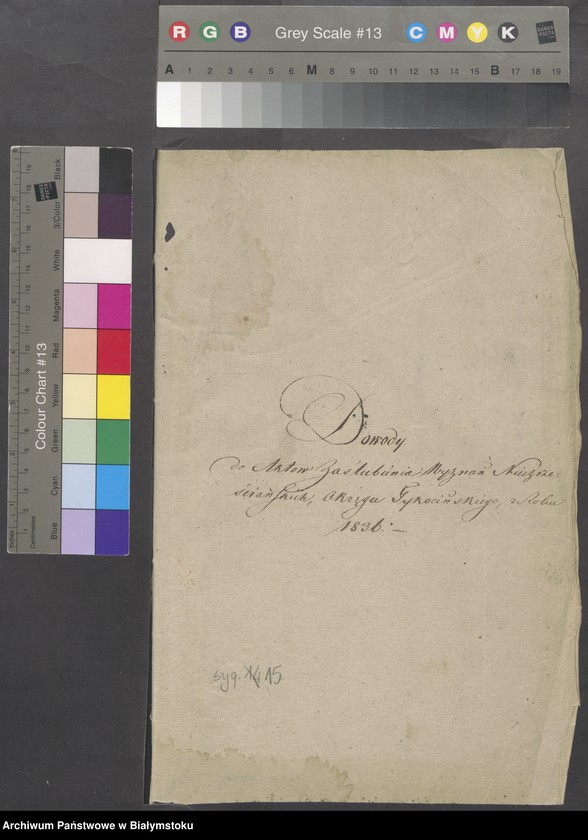 R G B Grey Scale #13 C M Y K DANES PICTA
A 1 2 3 4 5 6 M 8 9 10 11 12 13 14 15 B 17 18 19
Colour Chart #13
Black
3/Color
White
Magenta
Red
Yellow
Green
Cyan
Blue
Inches
Centimetres
Dowody
do Aktow Zaślubienia Wyznań Niechrze-
ściańskich, Okręgu Tykocińskiego, z Roku
1836. —
syg. 15
Archiwum Państwowe w Białymstoku